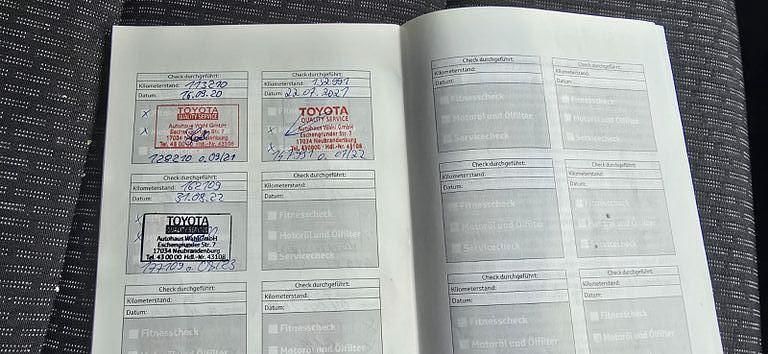 Check durchgeführt:
Kilometerstand: 113210
Datum: 16.09.20
TOYOTA
QUALITY SERVICE
Autohaus Wahl GmbH
Eschengrunder Str. 7
17034 Neubrandenburg
Tel. 43 00 00 Hdl.-Nr. 43108
128210 o. 09/21
Check durchgeführt:
Kilometerstand: 132.991
Datum: 22.07.2021
TOYOTA
QUALITY SERVICE
Autohaus Wahl GmbH
Eschengrunder Str. 7
17034 Neubrandenburg
Tel. 430000 · Hdl.-Nr. 43108
o. 07/22
Check durchgeführt:
Kilometerstand: 162109
Datum: 31.08.22
TOYOTA
QUALITY SERVICE
Autohaus Wahl GmbH
Eschengrunder Str. 7
17034 Neubrandenburg
Tel. 43 00 00 Hdl.-Nr. 43108
177109 o.
Check durchgeführt:
Kilometerstand:
Datum:
Fitnesscheck
Motoröl und Ölfilter
Servicecheck
Check durchgeführt:
Kilometerstand:
Datum:
Fitnesscheck
Motoröl und Ölfilter
Check durchgeführt:
Kilometerstand:
Datum:
Fitnesscheck
Motoröl und Ölfilter
Check durchgeführt:
Kilometerstand:
Datum:
Fitnesscheck
Motoröl und Ölfilter
Servicecheck
Check durchgeführt:
Kilometerstand:
Datum:
Fitnesscheck
Motoröl und Ölfilter
Servicecheck
Check durchgeführt:
Kilometerstand:
Datum:
Fitnesscheck
Motoröl und Ölfilter
Servicecheck
Check durchgeführt:
Kilometerstand:
Datum:
Fitnesscheck
Motoröl und Ölfilter
Servicecheck
Check durchgeführt:
Kilometerstand:
Datum:
Fitnesscheck
Motoröl und Ölfilter
Check durchgeführt:
Kilometerstand:
Datum:
Fitnesscheck
Motoröl und Ölfilter